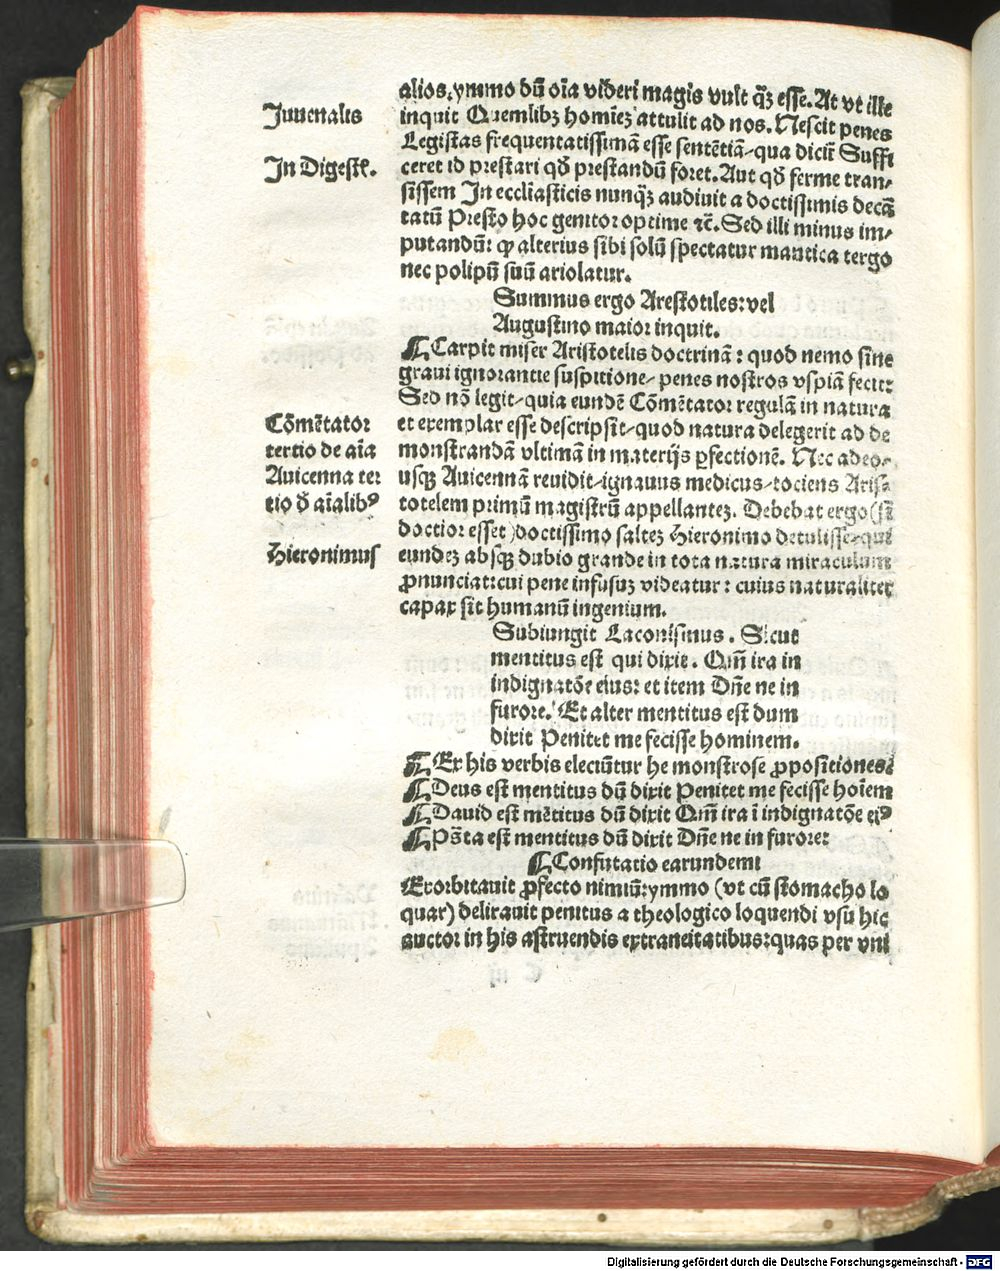 Juuenalis
In Digestꝭ.
Cōmētator
tertio de aīa
Auicenna ter
tio ď aīalibꝰ
Hieronimus
alios, ymmo dū oīa videri magis vult qꝫ esse. At vt ille
inquit Quemlibꝫ homieꝫ attulit ad nos. Nescit penes
Legistas frequentatissimā esse sentētiā/ qua dicit̄ Suffi
ceret id prestari qď prestandū foret. Aut qď ferme tran/
sissem In eccliasticis nunqꝫ audiuit a doctissimis decā
tatū Presto hoc genitor optime ⁊c̄. Sed illi minus im/
putandū: ꝙ alterius sibi solū spectatur mantica tergo
nec polipū suū ariolatur.
Summus ergo Arestotiles: vel
Augustino maior inquit.
¶ Carpit miser Aristotelis doctrinā: quod nemo sine
graui ignorantie suspitione/ penes nostros vspiā fecit:
Sed nō legit/ quia eundē Cōmētator regulā in natura
et exemplar esse descripsit/ quod natura delegerit ad de
monstrandā vltimā in materijs ꝑfectionē. Nec adeo/
usqꝫ Auicennā reuidit/ ignauus medicus/ tociens Aris/
totelem primū magistrū appellanteꝫ. Debebat ergo (si
doctior esset) doctissimo salteꝫ Hieronimo detulisse/ qui
eundeꝫ absqꝫ dubio grande in tota natura miraculum
ꝓnunciat: cui pene infusuꝫ videatur: cuius naturaliter
capax sit humanū ingenium.
Subiungit Laconisimus. Sicut
mentitus est qui dixit. Qm̄ ira in
indignatōe eius: et item Dn̄e ne in
furore. Et alter mentitus est dum
dixit Penitet me fecisse hominem.
¶ Ex his verbis eleciūtur he monstrose ꝓpositiones:
¶ Deus est mentitus dū dixit Penitet me fecisse hoīem
¶ Dauid est mētitus dū dixit Qm̄ ira ī indignatōe eiꝰ
¶ Ps̄ta est mentitus dū dixit Dn̄e ne in furore:
¶ Confutatio earundem
Exorbitauit ꝓfecto nimiū: ymmo (vt cū stomacho lo
quar) delirauit penitus a theologico loquendi vsu hic
auctor in his astruendis extraneitatibus: quas per vni
Digitalisierung gefördert durch die Deutsche Forschungsgemeinschaft - DFG